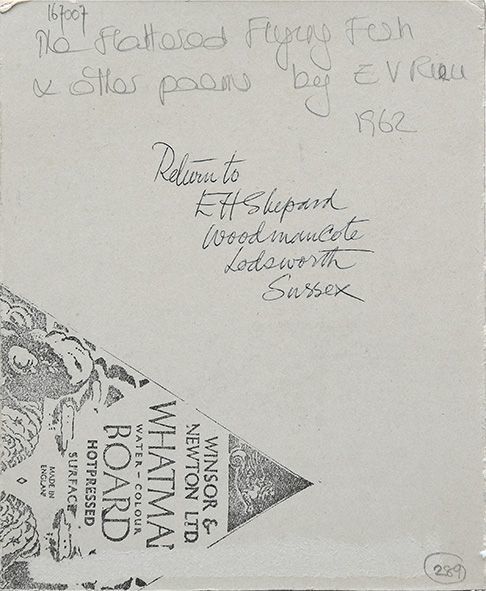 167007
The Flattered Flying Fish
& other poems by E V Rieu
1962
Return to
E H Shepard
Woodmancote
Lodsworth
Sussex
WINSOR &
NEWTON LTD.
WHATMA
WATER-COLOUR
BOARD
HOTPRESSED
SURFACE
MADE IN
ENGLAN
289